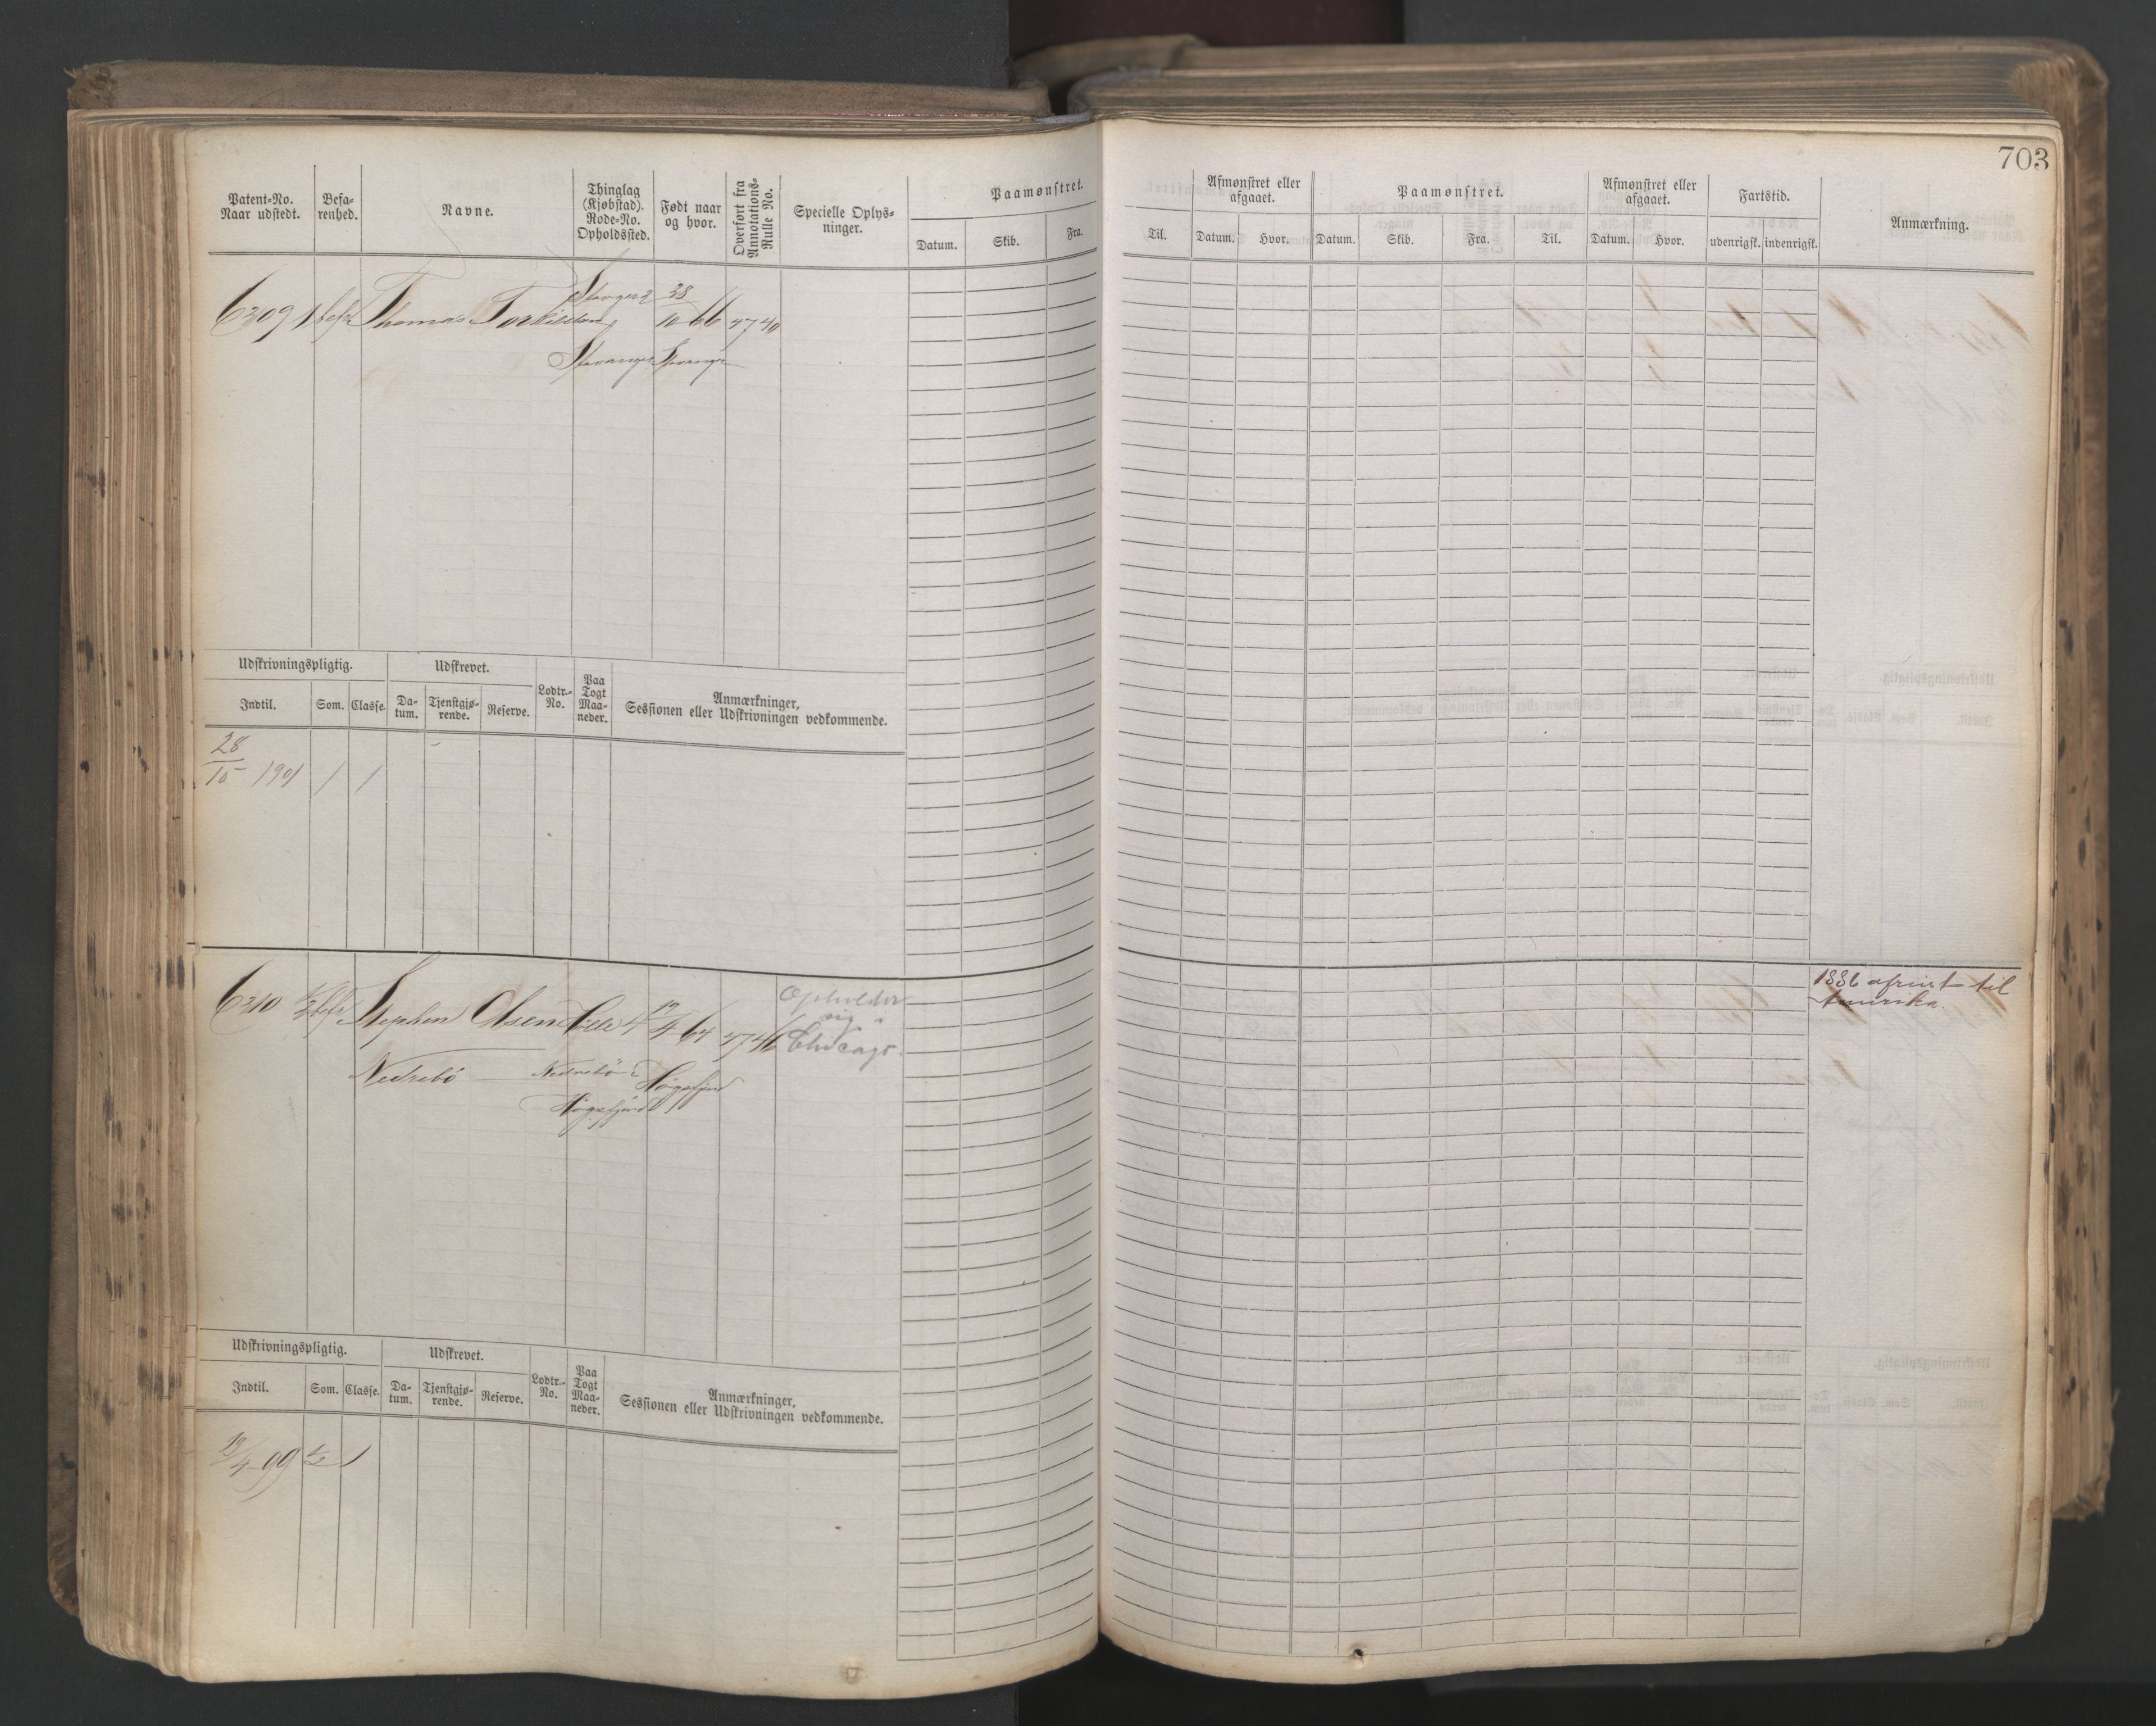 703
Patent-No. Naar udstedt.
Befa-renhed.
Navne.
Thinglag (Kjøbstad). Rode-No. Opholdssted.
Født naar og hvor.
Overført fra Annotations-Rulle No.
Specielle Oplys-ninger.
Paamønstret.
Datum. Skib. Fra. Til.
Afmønstret eller afgaaet.
Datum. Hvor.
Paamønstret.
Datum. Skib. Fra. Til.
Afmønstret eller afgaaet.
Datum. Hvor.
Fartstid.
udenrigsk. indenrigsk.
Anmærkning.
6209 Thomas Torkildsen Stavanger 28/10 66 4740
Stavanger Stavanger
Udskrivningspligtig. Udskrevet. Lodtr.-No. Paa Togt Maa-neder. Anmærkninger, Sessionen eller Udskrivningen vedkommende.
Indtil. Som. Classe. Da-tum. Tjenstgjø-rende. Reserve.
28/10 1901 1 1
6210 Stephen Olsen 4 19/4 64 4746 Opholder sig i Chicago.
Nedrebö Nedrebö i Högsfjord
Högsfjord
1886 afreist til
Amerika.
Udskrivningspligtig. Udskrevet. Lodtr.-No. Paa Togt Maa-neder. Anmærkninger, Sessionen eller Udskrivningen vedkommende.
Indtil. Som. Classe. Da-tum. Tjenstgjø-rende. Reserve.
19/4 99 1/2 1